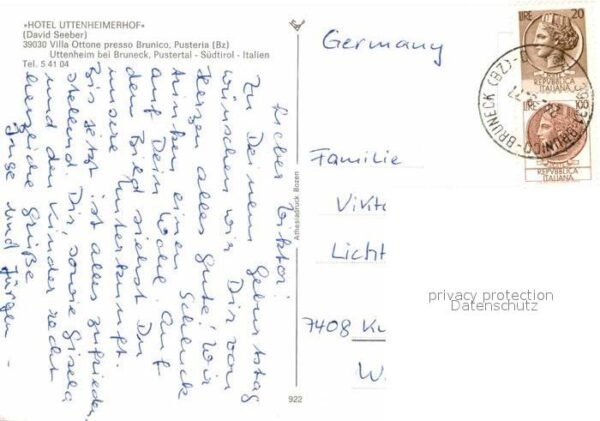 »HOTEL UTTENHEIMERHOF«
(David Seeber)
39030 Villa Ottone presso Brunico, Pusteria (Bz)
Uttenheim bei Bruneck, Pustertal - Südtirol - Italien
Tel. 5 41 04
Lieber Viktor!
Zu Deinem Geburtstag
wünschen wir Dir von
Herzen alles Gute! Wir
trinken einen Schluck
auf Dein Wohl. Auf
dem Bild siehst Du
unsere Unterkunft.
Bis jetzt ist alles zufrieden-
stellend. Dir, sowie Gisela
und den Kinder recht
herzliche Grüße
Inge und Jürgen
Athesiadruck Bozen
922
Germany
Familie
Vikto
Licht
7408 Ku
W
LIRE 20
REPVBBLICA
ITALIANA
LIRE 100
REPVBBLICA
ITALIANA
39031 BRUNICO-BRUNECK (BZ)
privacy protection
Datenschutz